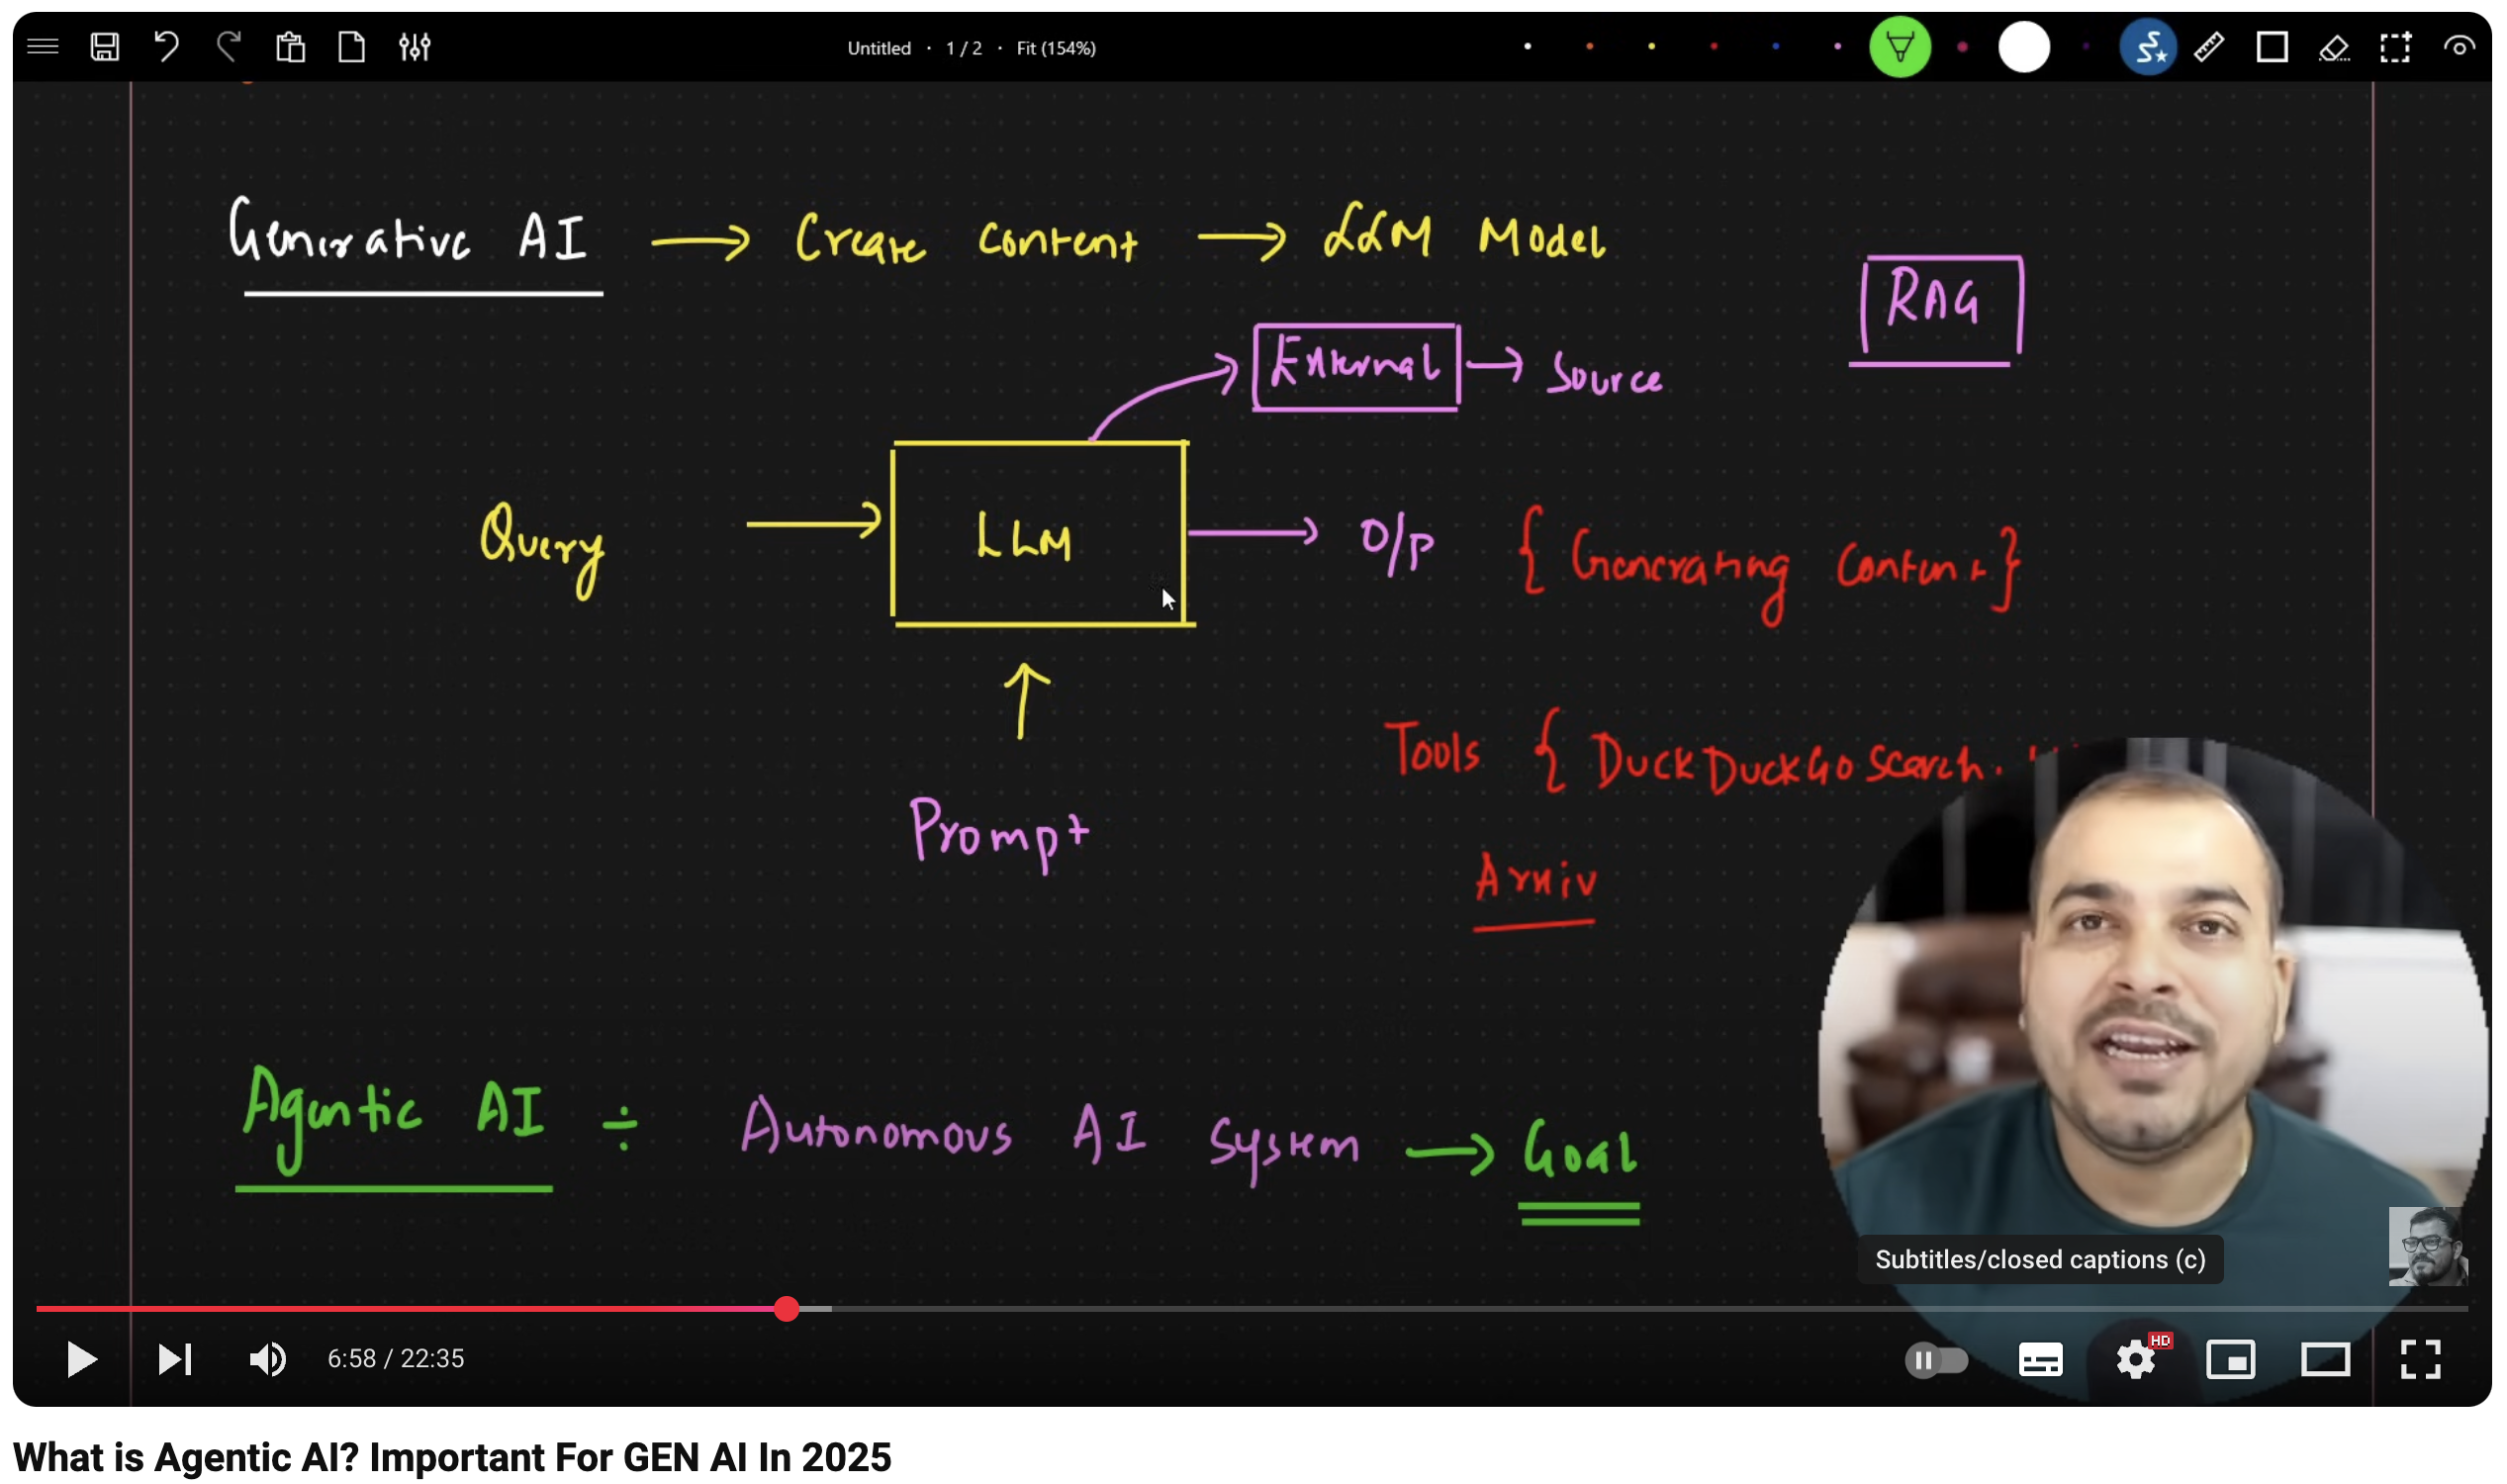 Untitled · 1 / 2 · Fit (154%)
Generative AI → Create Content → LLM Model
RAG
External → Source
Query → LLM → O/P { Generating Content }
Tools { DuckDuckGo Search.
Prompt
Arxiv
Agentic AI ÷ Autonomous AI System → Goal
Subtitles/closed captions (c)
6:58 / 22:35
HD
What is Agentic AI? Important For GEN AI In 2025